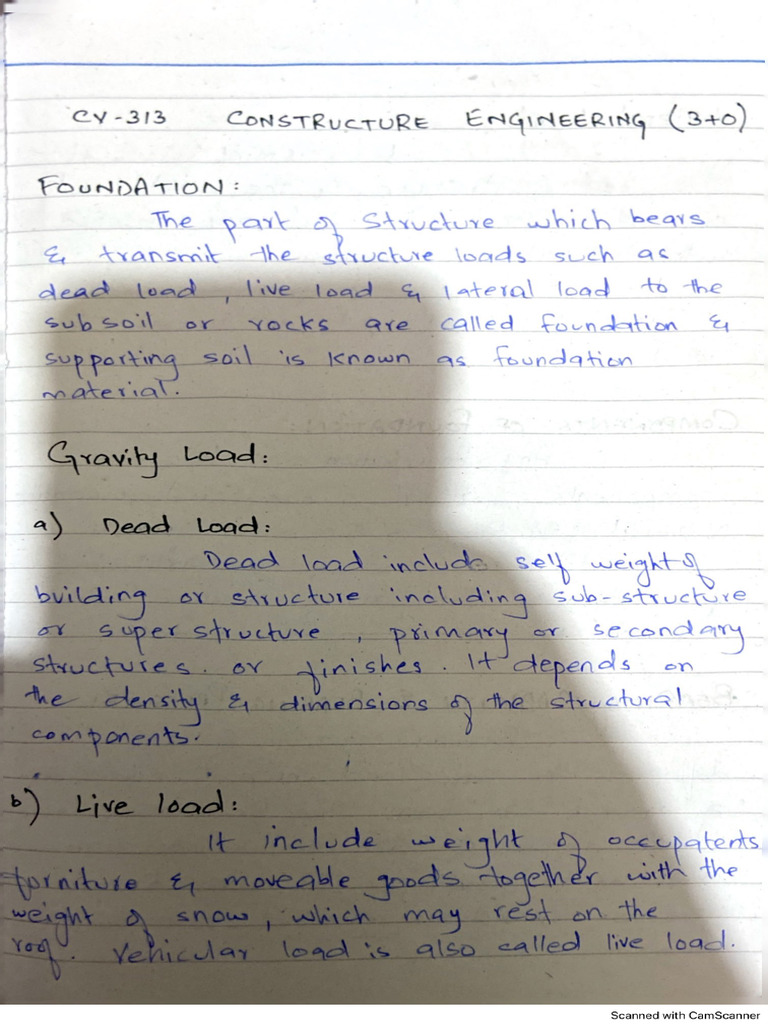 CV-313 CONSTRUCTURE ENGINEERING (3+0)
FOUNDATION:
The part of Structure which bears
& transmit the structure loads such as
dead load, live load & lateral load to the
subsoil or rocks are called foundation &
supporting soil is known as foundation
material.
Gravity Load:
a) Dead Load:
Dead load include self weight of
building or structure including sub-structure
or super structure, primary or secondary
structures. or finishes. It depends on
the density & dimensions of the structural
components.
b) Live load:
It include weight of occupatents
forniture & moveable goods together with the
weight of snow, which may rest on the
roof. Vehicular load is also called live load.
Scanned with CamScanner